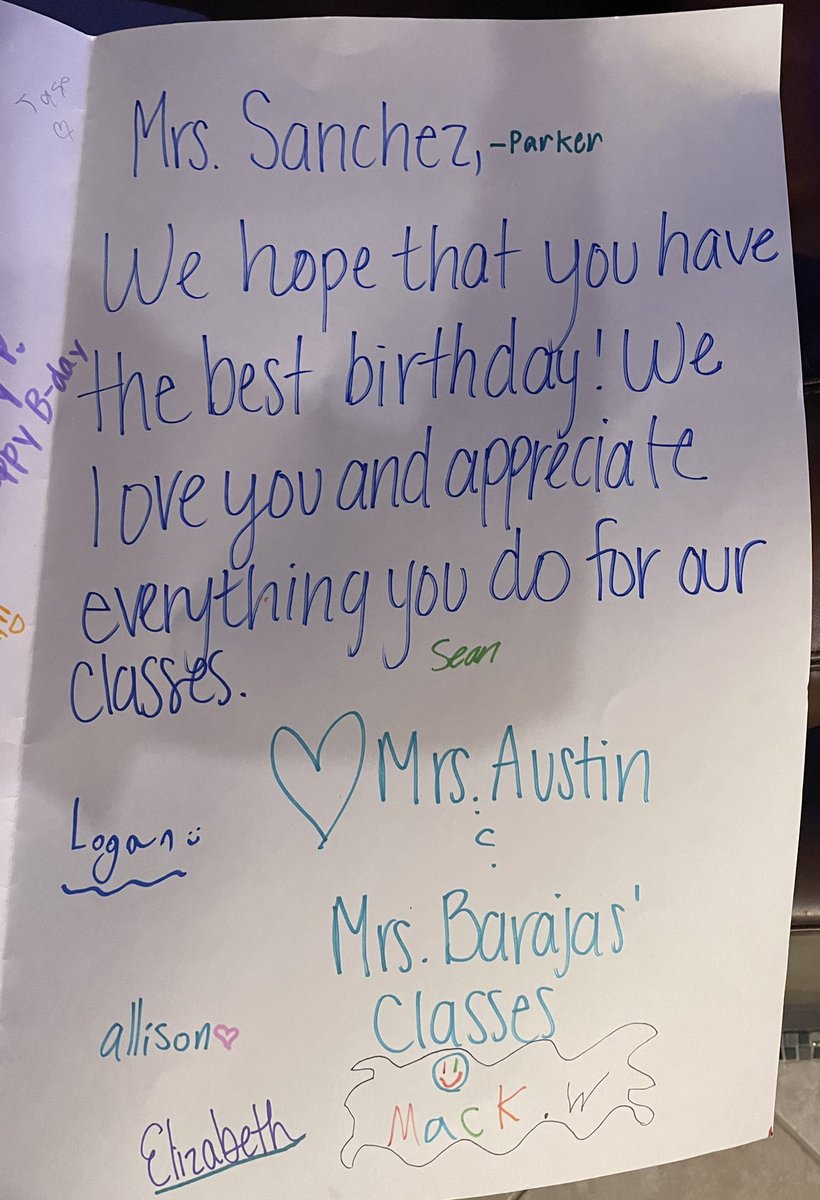 Mrs. Sanchez, -Parker
We hope that you have
the best birthday! We
love you and appreciate
everything you do for our
classes.
Sean
Mrs. Austin
&
Mrs. Barajas'
Classes
Logan
allison
Elizabeth
Mack.W
B-day